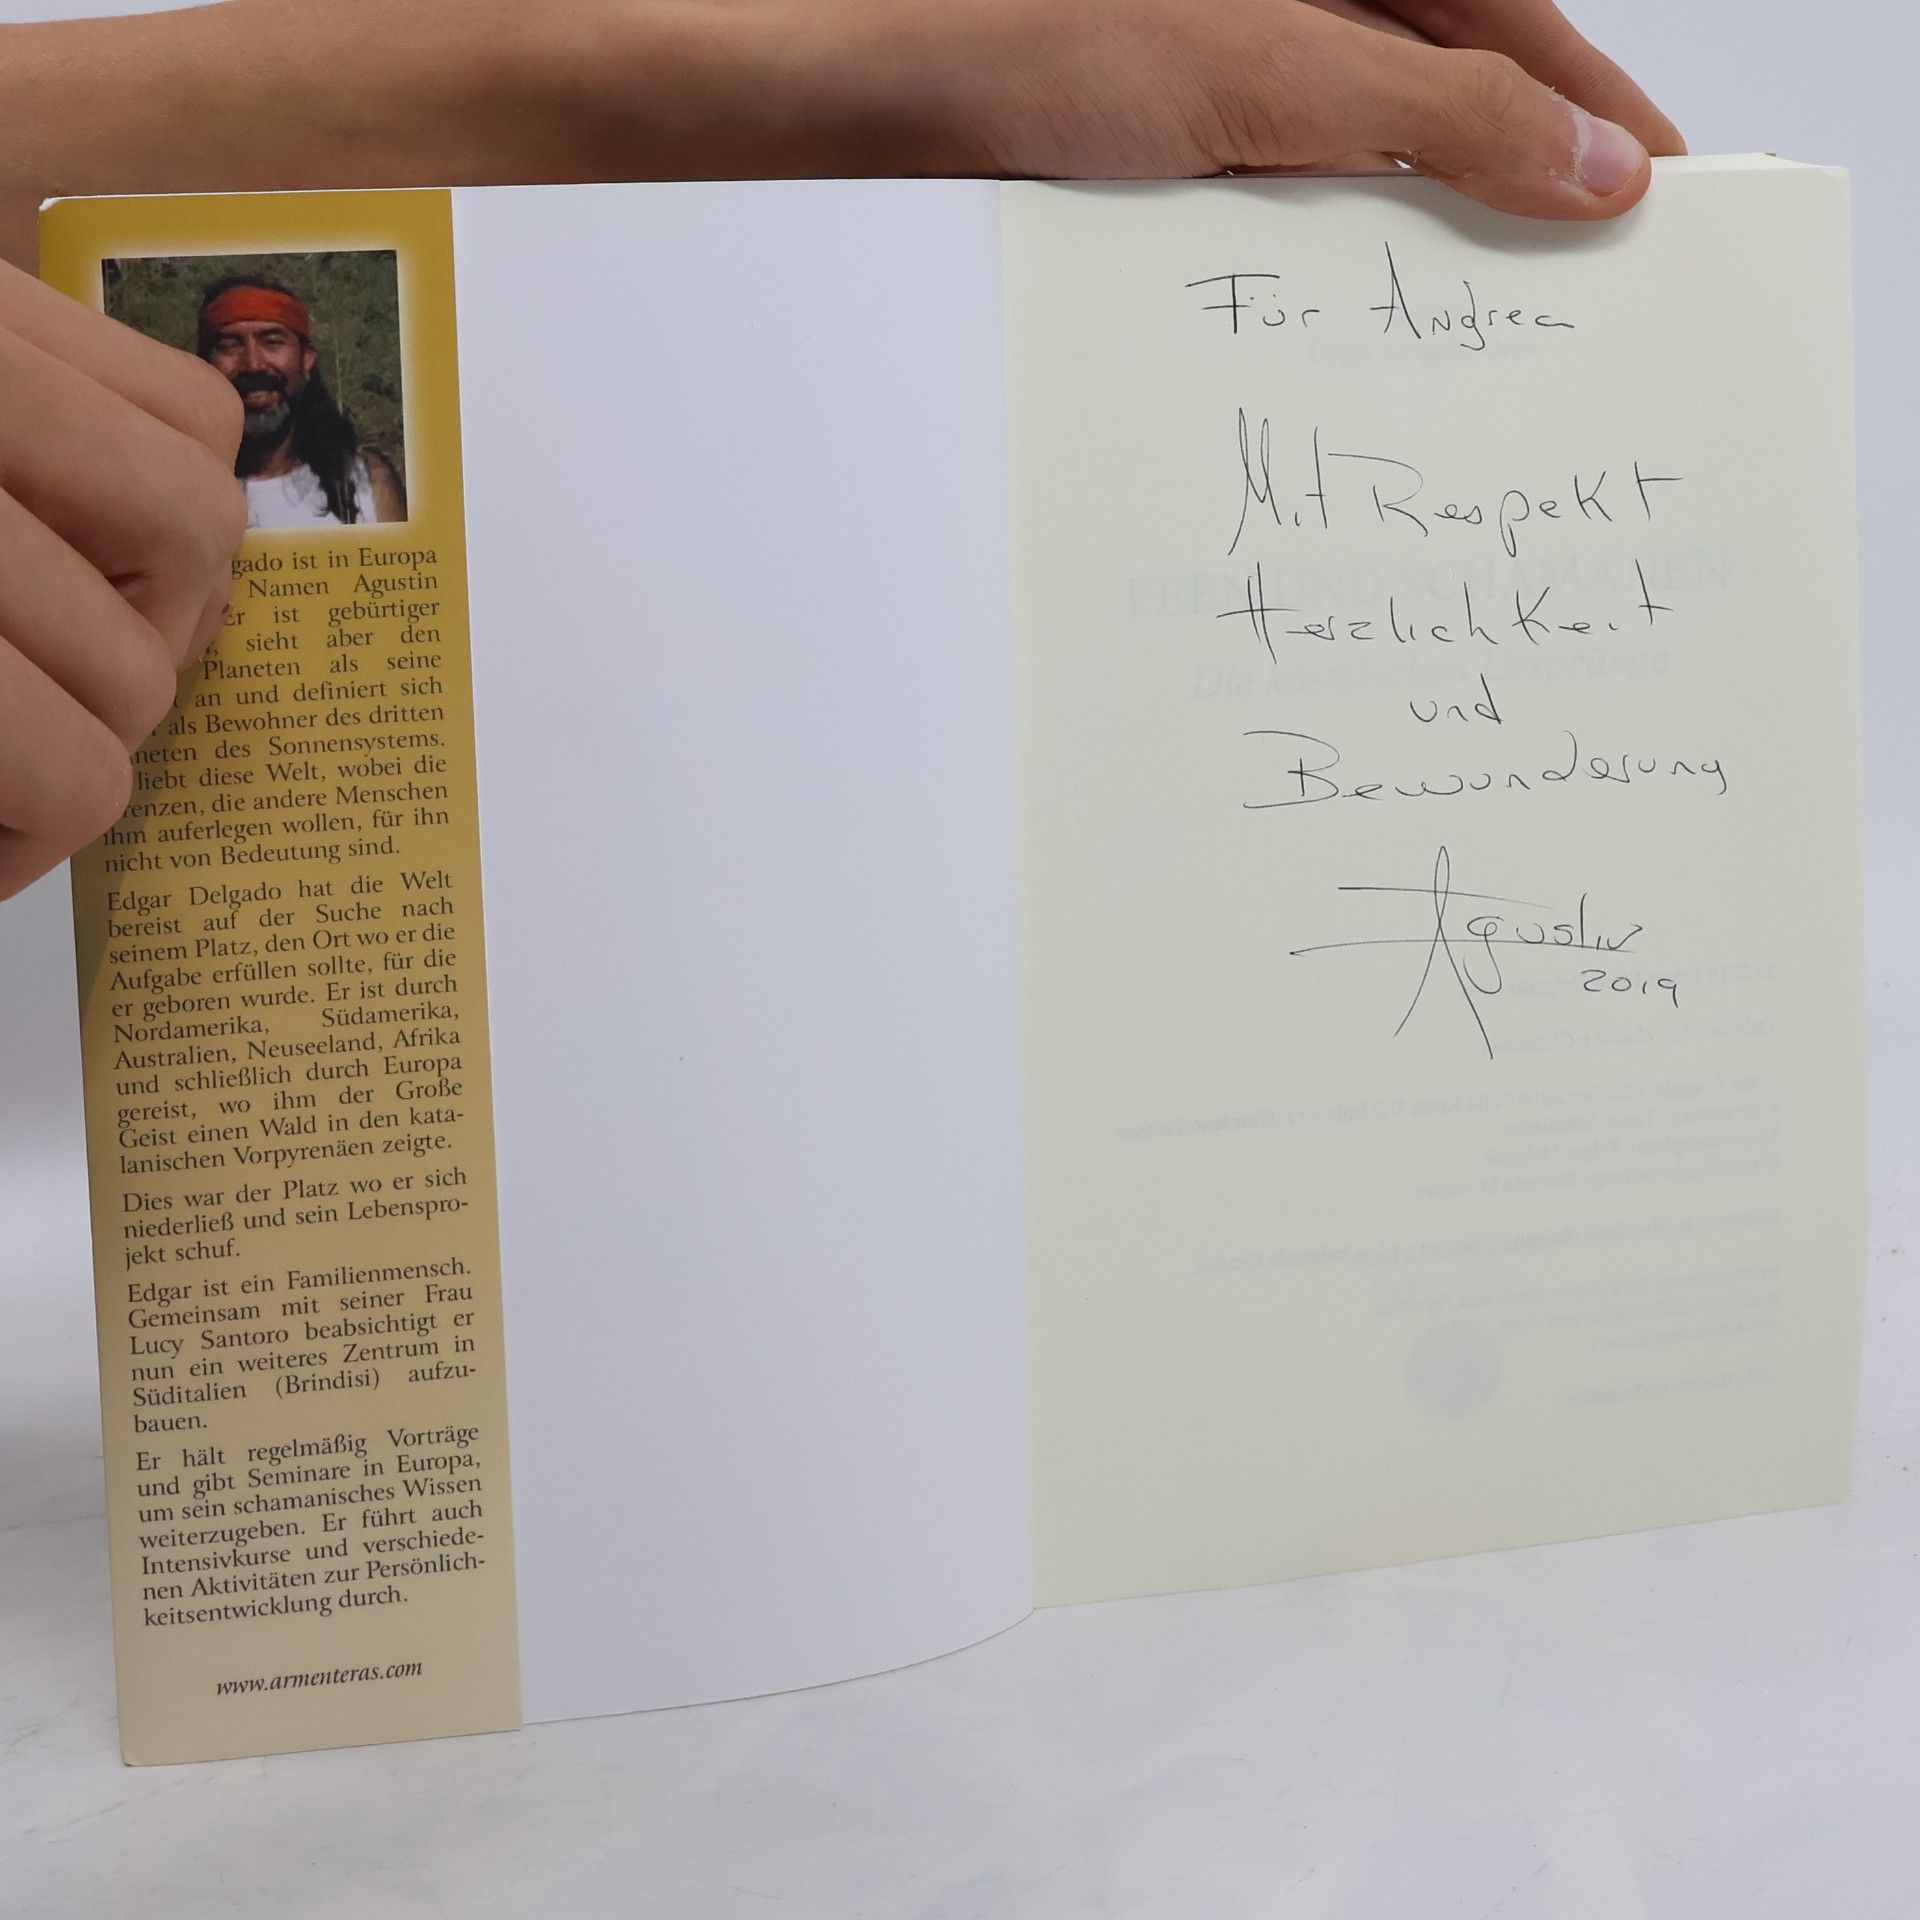 gado ist in Europa
Namen Agustin
Er ist gebürtiger
sieht aber den
Planeten als seine
an und definiert sich
als Bewohner des dritten
neten des Sonnensystems.
liebt diese Welt, wobei die
renzen, die andere Menschen
ihm auferlegen wollen, für ihn
nicht von Bedeutung sind.
Edgar Delgado hat die Welt
bereist auf der Suche nach
seinem Platz, den Ort wo er die
Aufgabe erfüllen sollte, für die
er geboren wurde. Er ist durch
Nordamerika, Südamerika,
Australien, Neuseeland, Afrika
und schließlich durch Europa
gereist, wo ihm der Große
Geist einen Wald in den kata-
lanischen Vorpyrenäen zeigte.
Dies war der Platz wo er sich
niederließ und sein Lebenspro-
jekt schuf.
Edgar ist ein Familienmensch.
Gemeinsam mit seiner Frau
Lucy Santoro beabsichtigt er
nun ein weiteres Zentrum in
Süditalien (Brindisi) aufzu-
bauen.
Er hält regelmäßig Vorträge
und gibt Seminare in Europa,
um sein schamanisches Wissen
weiterzugeben. Er führt auch
Intensivkurse und verschiede-
nen Aktivitäten zur Persönlich-
keitsentwicklung durch.
www.armenteras.com
Für Andrea
Mit Respekt
Herzlichkeit
und
Bewunderung
Agustin
2019
FEEN UND SCHAMANEN
Die kosmischen Ursprünge